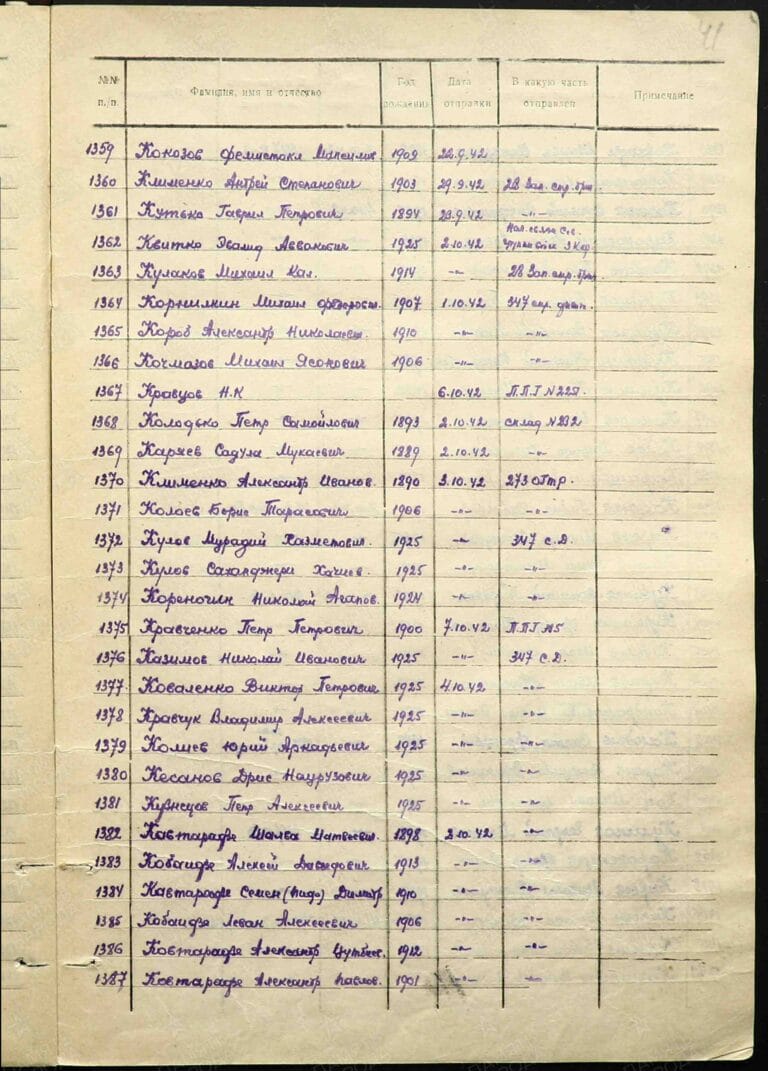 41
№№ п/п. Фамилия, имя и отчество Год рождения Дата отправки В какую часть отправлен Примечание
1359 Кокозов Фемистокл 1909 22.9.42
1360 Клименко Андрей Степанович 1903 29.9.42 28 Зап. стр. бриг.
1361 Кутько Гаврил Петрович 1894 23.9.42 -"-
1362 Квитко 1925 2.10.42
1363 Кулаков Михаил Кал. 1914 -"- 28 Зап. стр. бриг.
1364 Корнилкин Михаил 1907 1.10.42 347 стр. дивиз.
1365 Короб Александр Николаевич 1910 -"- -"-
1366 Кочмазов Михаил Ясонович 1906 -"- -"-
1367 Кравцов Н.К 6.10.42
1368 Колодько Петр Самойлович 1893 2.10.42 склад N 232
1369 Каряев Садула Мукаевич 1889 2.10.42 -"-
1370 Клименко Александр Иванов. 1890 3.10.42
1371 Колоев Борис Тарасович 1906 -"- -"-
1372 Кулов 1925 -"- 347 с.д.
1373 Кулов Хачиев. 1925 -"- -"-
1374 Кореночкин Николай Агапов. 1924 -"- -"-
1375 Кравченко Петр Петрович 1900 7.10.42 ППГ №5
1376 Казимов Николай Иванович 1925 -"- 347 с.д.
1377 Коваленко Виктор Петрович 1925 4.10.42 -"-
1378 Кравчук Владимир Алексеевич 1925 -"- -"-
1379 Колиев Юрий Аркадьевич 1925 -"- -"-
1380 Кесанов Дрис Наурузович 1925 -"- -"-
1381 Кузнецов Петр Алексеевич 1925 -"- -"-
1382 Кавтарадзе Шалва Матвеевич 1898 2.10.42 -"-
1383 Кобаидзе Алексей Давыдович 1913 -"- -"-
1384 Кавтарадзе Семен Димитр 1910 -"- -"-
1385 Кобаидзе Леван Алексеевич 1906 -"- -"-
1386 Кавтарадзе Александр 1912 -"- -"-
1387 Кавтарадзе Александр Павлов. 1901 -"- -"-